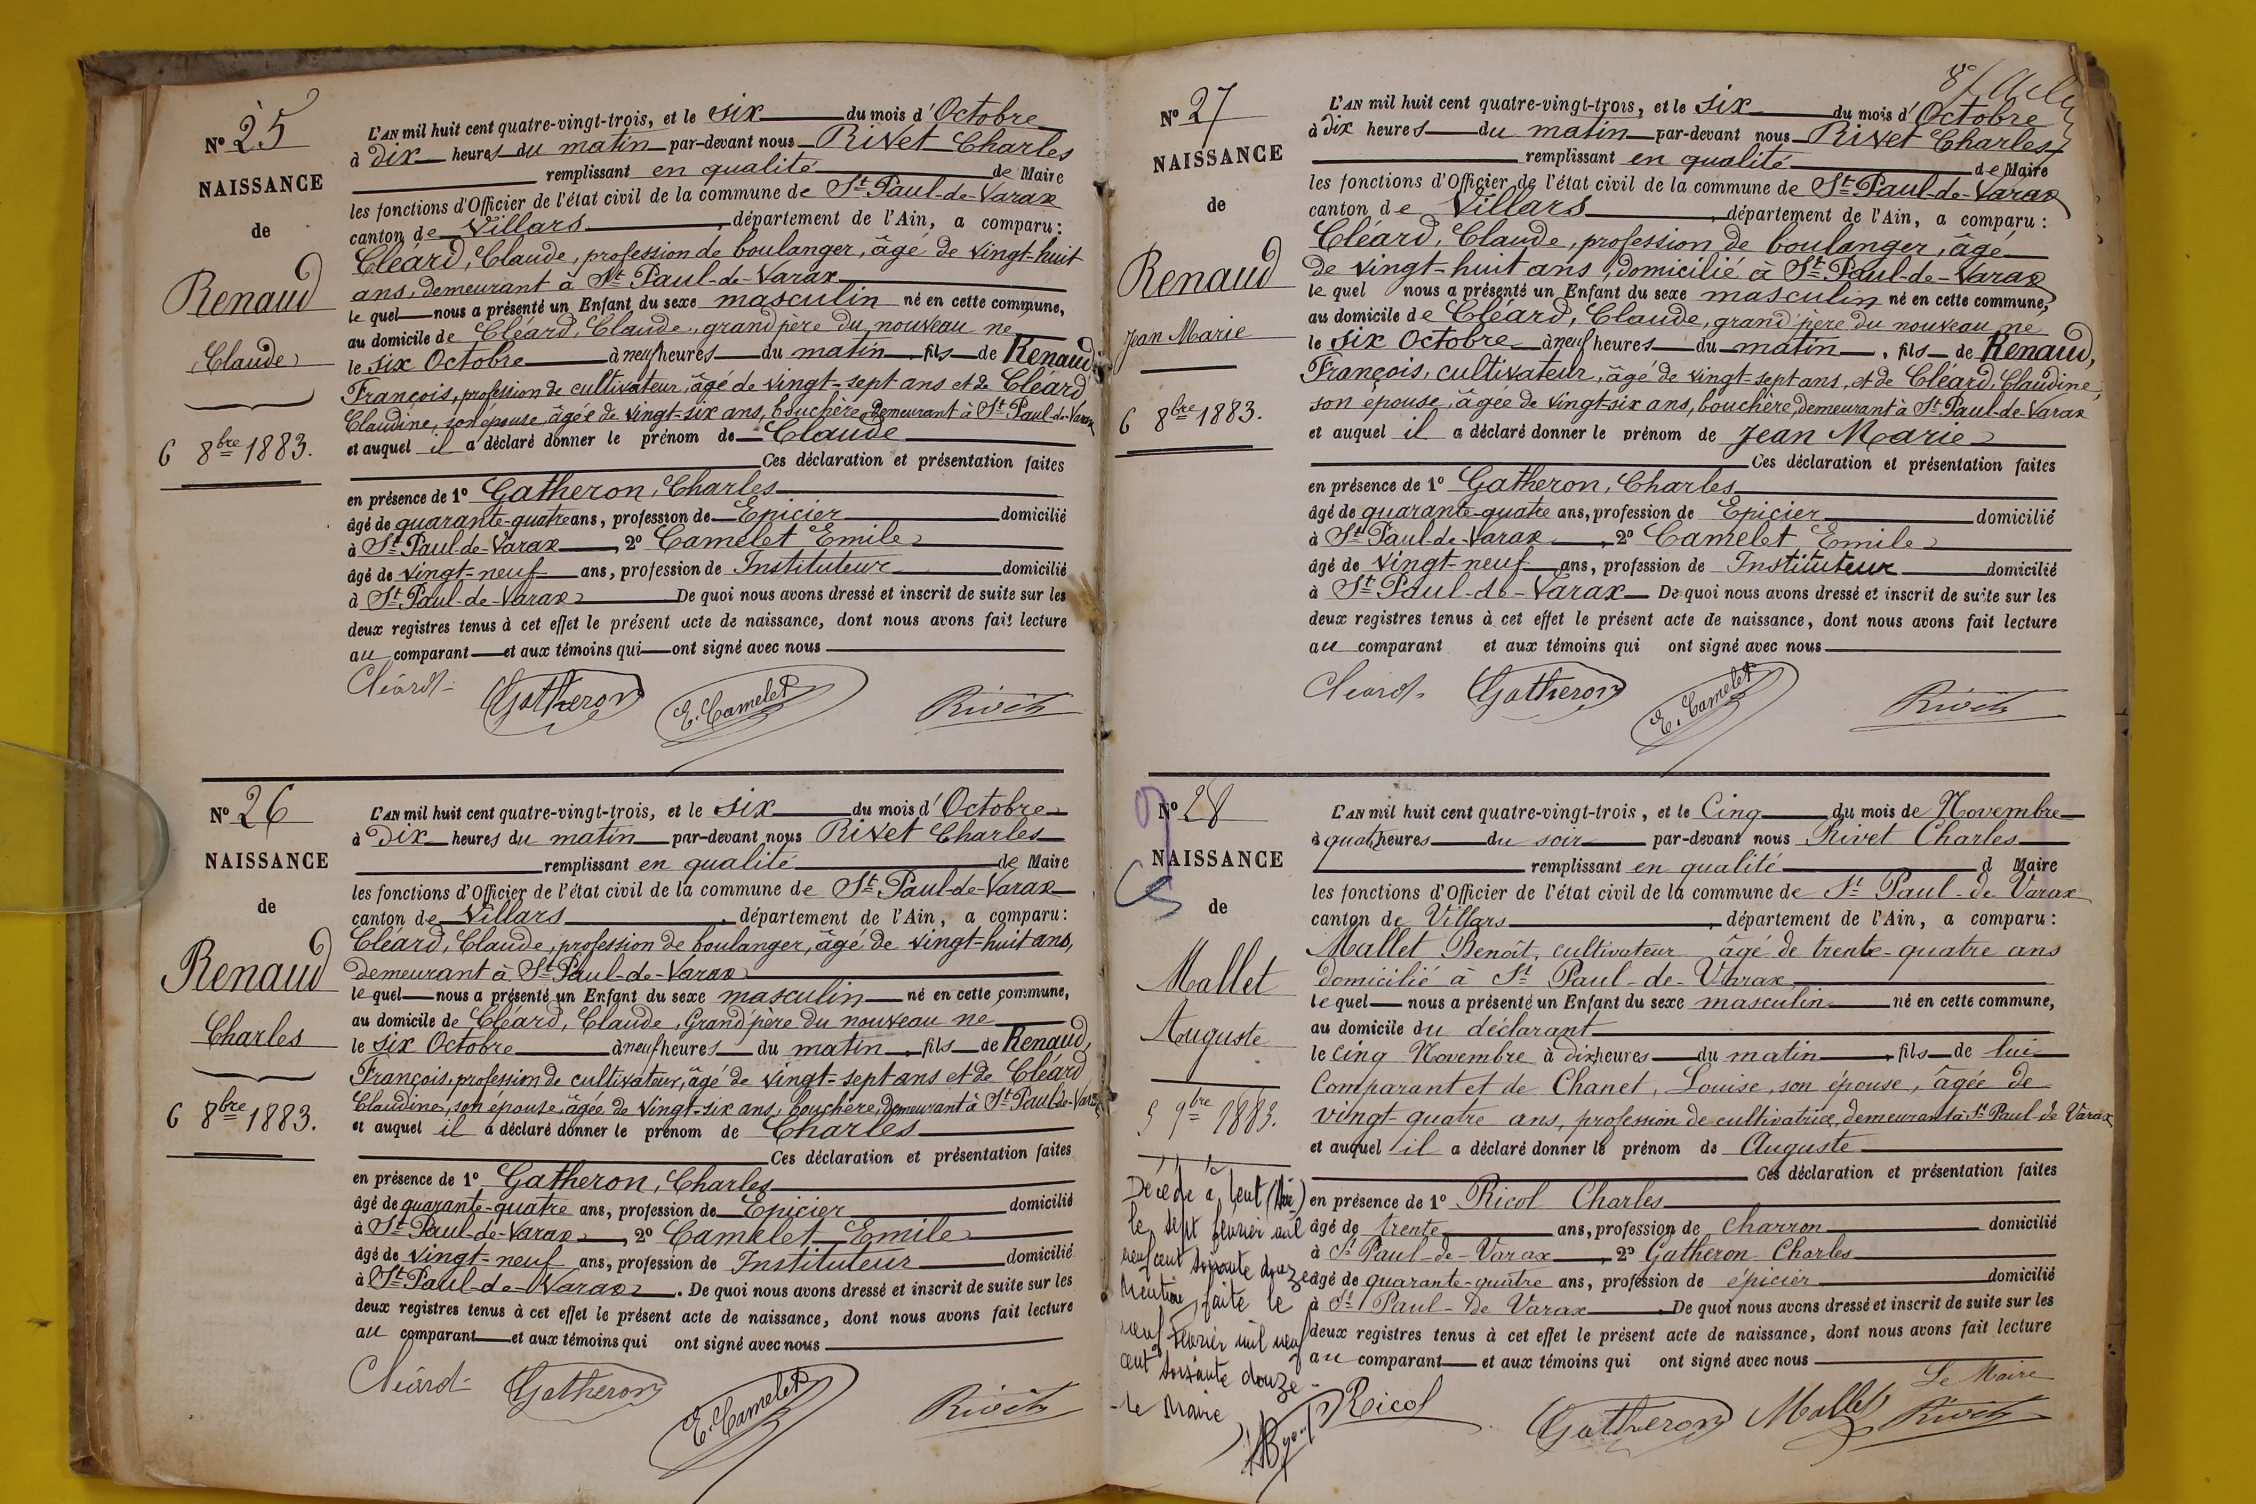 Nº 25
NAISSANCE
de
Renaud
Claude
6 8bre 1883.
L'AN mil huit cent quatre-vingt-trois, et le six du mois d'Octobre
à Dix heures du matin par-devant nous Rivet Charles
remplissant en qualité de Maire
les fonctions d'Officier de l'état civil de la commune de St Paul-de-Varax
canton de Villars, département de l'Ain, a comparu :
Cléard, Claude, profession de boulanger, âgé de vingt-huit
ans, demeurant à St Paul-de-Varax
lequel nous a présenté un Enfant du sexe masculin né en cette commune,
au domicile de Cléard, Claude, grand père du nouveau né
le six Octobre à neuf heures du matin, fils de Renaud,
François, profession de cultivateur, âgé de vingt-sept ans et de Cléard
Claudine, son épouse, âgée de vingt-six ans, bouchère, demeurant à St Paul-de-Varax
et auquel il a déclaré donner le prénom de Claude
Ces déclaration et présentation faites
en présence de 1º Gatheron, Charles
âgé de quarante-quatre ans, profession de Epicier domicilié
à St Paul-de-Varax, 2º Camelet Emile
âgé de vingt-neuf ans, profession de Instituteur domicilié
à St Paul-de-Varax De quoi nous avons dressé et inscrit de suite sur les
deux registres tenus à cet effet le présent acte de naissance, dont nous avons fait lecture
au comparant et aux témoins qui ont signé avec nous
Cléard Gatheron E. Camelet Rivet
Nº 26
NAISSANCE
de
Renaud
Charles
6 8bre 1883.
L'AN mil huit cent quatre-vingt-trois, et le six du mois d'Octobre
à Dix heures du matin par-devant nous Rivet Charles
remplissant en qualité de Maire
les fonctions d'Officier de l'état civil de la commune de St Paul-de-Varax
canton de Villars, département de l'Ain, a comparu :
Cléard, Claude, profession de boulanger, âgé de vingt-huit ans,
demeurant à St Paul-de-Varax
lequel nous a présenté un Enfant du sexe masculin né en cette commune,
au domicile de Cléard, Claude, Grand père du nouveau né
le six Octobre à neuf heures du matin, fils de Renaud,
François, profession de cultivateur, âgé de vingt-sept ans et de Cléard
Claudine, son épouse, âgée de vingt-six ans, bouchère, demeurant à St Paul-de-Varax
et auquel il a déclaré donner le prénom de Charles
Ces déclaration et présentation faites
en présence de 1º Gatheron, Charles
âgé de quarante-quatre ans, profession de Epicier domicilié
à St Paul-de-Varax, 2º Camelet Emile
âgé de vingt-neuf ans, profession de Instituteur domicilié
à St Paul-de-Varax. De quoi nous avons dressé et inscrit de suite sur les
deux registres tenus à cet effet le présent acte de naissance, dont nous avons fait lecture
au comparant et aux témoins qui ont signé avec nous
Cléard Gatheron E. Camelet Rivet
Nº 27
NAISSANCE
de
Renaud
Jean Marie
6 8bre 1883.
L'AN mil huit cent quatre-vingt-trois, et le six du mois d'Octobre
à dix heures du matin par-devant nous Rivet Charles
remplissant en qualité de Maire
les fonctions d'Officier de l'état civil de la commune de St Paul-de-Varax
canton de Villars, département de l'Ain, a comparu :
Cléard, Claude, profession de boulanger, âgé
de vingt-huit ans, domicilié à St Paul-de-Varax
lequel nous a présenté un Enfant du sexe masculin né en cette commune,
au domicile de Cléard, Claude, grand père du nouveau né
le six Octobre à neuf heures du matin, fils de Renaud,
François, cultivateur, âgé de vingt-sept ans, et de Cléard, Claudine,
son épouse, âgée de vingt-six ans, bouchère, demeurant à St Paul-de-Varax
et auquel il a déclaré donner le prénom de Jean Marie
Ces déclaration et présentation faites
en présence de 1º Gatheron, Charles
âgé de quarante-quatre ans, profession de Epicier domicilié
à St Paul-de-Varax, 2º Camelet Emile
âgé de vingt-neuf ans, profession de Instituteur domicilié
à St Paul-de-Varax De quoi nous avons dressé et inscrit de suite sur les
deux registres tenus à cet effet le présent acte de naissance, dont nous avons fait lecture
au comparant et aux témoins qui ont signé avec nous
Cléard Gatheron E. Camelet Rivet
Nº 28
NAISSANCE
de
Mallet
Auguste
5 9bre 1883.
Décédé à
le sept février mil
neuf cent soixante douze
Mention faite le
neuf février mil neuf
cent soixante douze
le Maire
L'AN mil huit cent quatre-vingt-trois, et le Cinq du mois de Novembre
à quat. heures du soir par-devant nous Rivet Charles
remplissant en qualité d Maire
les fonctions d'Officier de l'état civil de la commune de St Paul-de Varax
canton de Villars, département de l'Ain, a comparu :
Mallet Benoît, cultivateur âgé de trente-quatre ans
domicilié à St Paul-de-Varax
lequel nous a présenté un Enfant du sexe masculin né en cette commune,
au domicile du déclarant
le cinq Novembre à dix heures du matin, fils de lui
Comparant et de Chanel, Louise, son épouse, âgée de
vingt-quatre ans, profession de cultivatrice, demeurant à St Paul de Varax
et auquel il a déclaré donner le prénom de Auguste
Ces déclaration et présentation faites
en présence de 1º Ricol Charles
âgé de trente ans, profession de charron domicilié
à St Paul-de-Varax, 2º Gatheron Charles
âgé de quarante-quatre ans, profession de épicier domicilié
à St Paul-de Varax. De quoi nous avons dressé et inscrit de suite sur les
deux registres tenus à cet effet le présent acte de naissance, dont nous avons fait lecture
au comparant et aux témoins qui ont signé avec nous
Le Maire
Ricol Gatheron Mallet Rivet